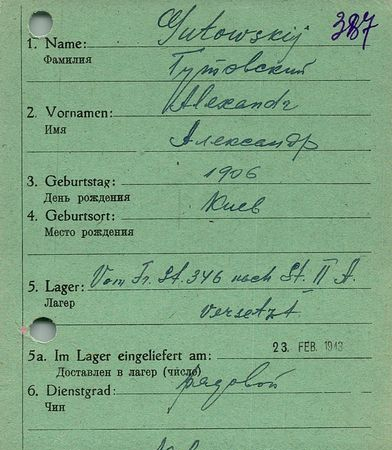 387
Gutowskij
1. Name:
Фамилия
Гутовский
Alexandr
2. Vornamen:
Имя
Александр
3. Geburtstag: 1906
День рождения
4. Geburtsort: Киев
Место рождения
5. Lager: Vom Fr. St. 346 nach St. II A.
Лагер
versetzt
5a. Im Lager eingeliefert am: 23. FEB. 1943
Доставлен в лагер (число)
6. Dienstgrad: рядовой
Чин